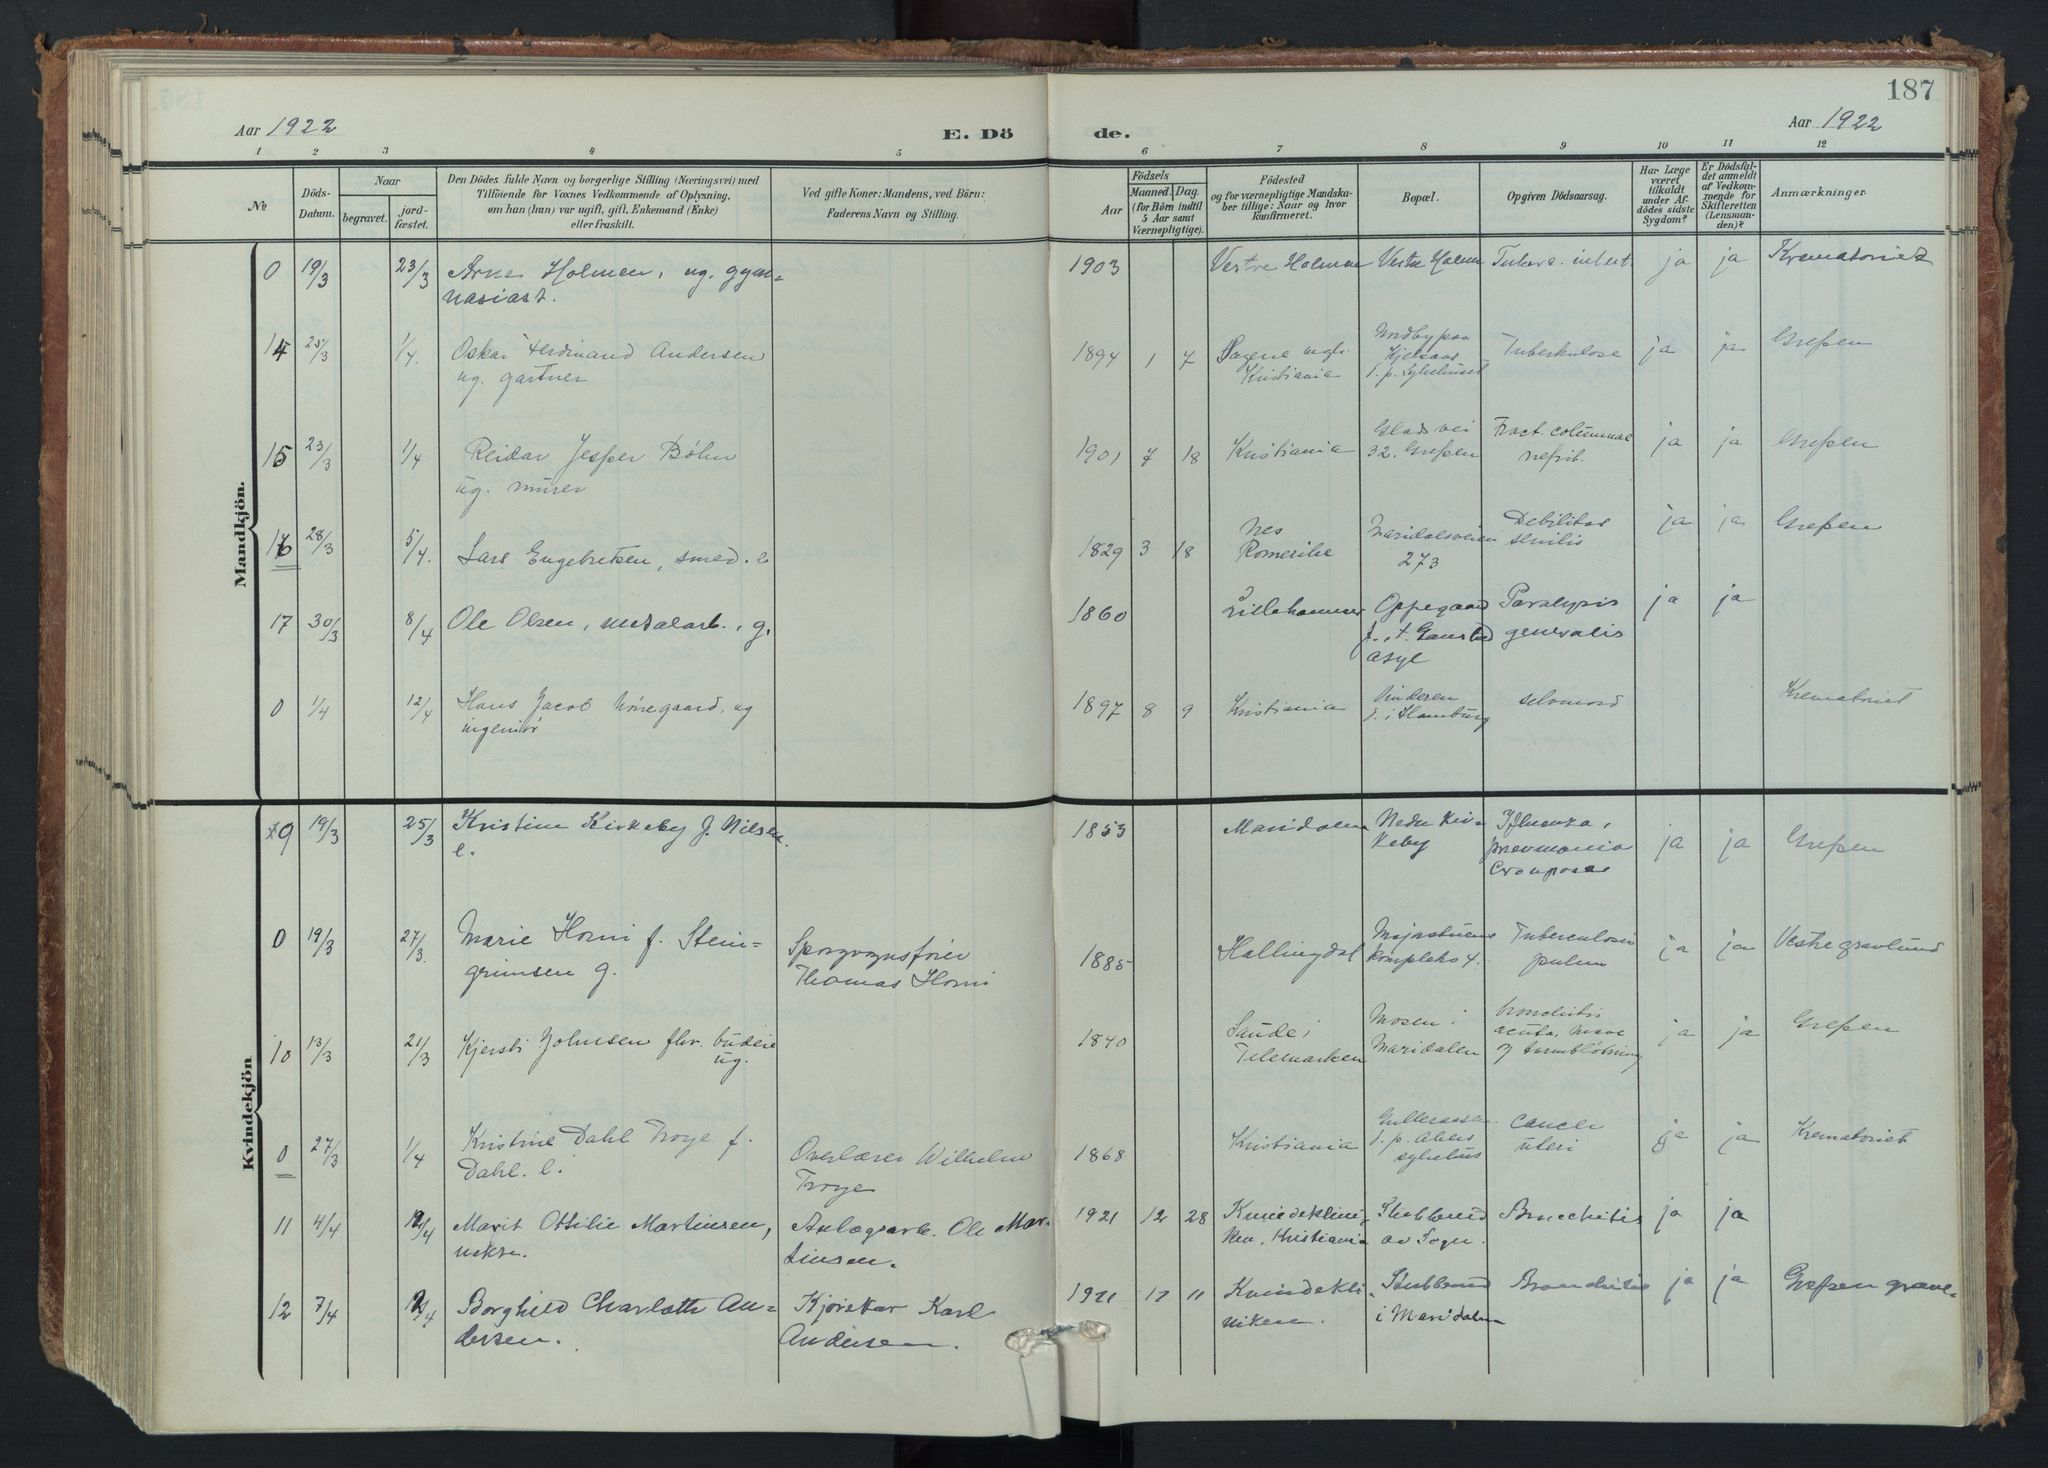 187
Aar 1922
E. Dö de.
Aar 1922
1 2 3 4 5 6 7 8 9 10 11 12
№
Döds-
Datum.
Naar
begravet.
jord-
fæstet.
Den Dödes fulde Navn og borgerlige Stilling (Næringsvei) med
Tilföiende for Voxnes Vedkommende af Oplysning,
om han (hun) var ugift, gift, Enkemand (Enke)
eller fraskilt.
Ved gifte Koner: Mandens, ved Börn:
Faderens Navn og Stilling.
Födsels
Aar
Maaned. Dag.
(for Börn indtil
5 Aar samt
Værnepligtige).
Födested
og for værnepligtige Mandska-
ber tillige: Naar og hvor
konfirmeret.
Bopæl.
Opgiven Dödsaarsag.
Har Læge
været
tilkaldt
under Af-
dödes sidste
Sygdom?
Er Dödsfal-
det anmeldt
af Vedkom-
mende for
Skifteretten
(Lensman-
den)?
Anmærkninger
Mandkjön.
0 19/3 23/3 Arne Holmen, ug. gym- 1903 Vestre Holmen Vestre Holmen ja ja Krematoriet
nasiast.
14 25/3 1/4. Oskar Ferdinand Andersen 1894 1 7 Sagene Tuberkulose ja ja Grefsen
ug. gartner Kristiania Kjelsaas
d. p. Sykehuset
15 23/3 1/4 Reidar Jesper Böhn 1901 7 18 Kristiania Glads vei Fract. columnae ja ja Grefsen
ug. murer 32. Grefsen nefrit.
16 28/3 5/4. Lars Engebretsen, smed. e 1829 3 18 Nes Maridalsveien Debilitas ja ja Grefsen
Romerike 273 senilis
17 30/3 8/4 Ole Olsen, metalarb., g. 1860 Lillehammer Oppegaard Paralysis ja ja
Gaustad generalis
asyl
0 1/4 12/4 Hans Jacob Nöregaard, ug 1897 8 9 Kristiania Vinderen selvmord Krematoriet
ingeniör d. i Hamburg
Kvindekjön
9 19/3 25/3 Kristine Kirkeby f. Nilsen 1853 Maridalen Nedre Kir- Influenza, ja ja Grefsen
e. keby pnevmonia
crouposa
0 19/3 27/3. Marie Horni f. Stein- Sporvognsfører 1885 Hallingdal Majorstuens Tuberculosis ja ja Vestre gravlund
grimsen g. Thomas Horni kompleks 4. pulm
10 13/3 21/3 Kjersti Johnsen fhv. budeie 1840 Saude i Mosen i bronchitis ja ja Grefsen
ug. Telemarken Maridalen acuta, mave
og tarmblödning
0 27/3 1/4 Kristine Dahl Troye f. Overlærer Wilhelm 1868 Kristiania cancer ja ja Krematoriet
Dahl. e. Troye d. p. sykehus uteri
11 4/4 12/4 Marit Ottilie Martinsen, Anlægsarb. Ole Mar- 1921 12 28 Kvindeklini- Stubberud Bronchitis ja ja
tinsen. ken, Kristiania av Sogn.
12 7/4 12/4 Borghild Charlotte An- Kjörekar Karl 1921 12 11 Kvindekli- Stubberud Bronchitis ja ja Grefsen grave-
dersen. Andersen. niken. i Maridalen